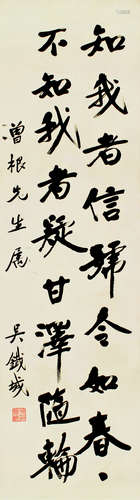 知我者信號令如春、
不知我者疑甘澤隨輪
根先生屬
吳鐵城